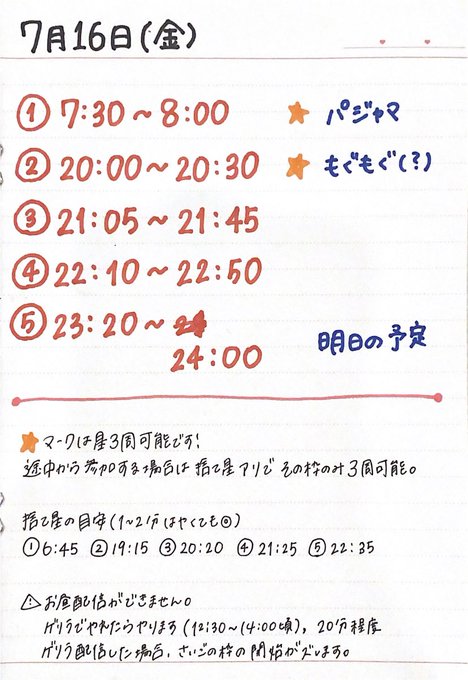 7月16日(金)
① 7:30～8:00 ★ パジャマ
② 20:00～20:30 ★ もぐもぐ(?)
③ 21:05～21:45
④ 22:10～22:50
⑤ 23:20～
24:00 明日の予定
★マークは星3周可能です!
途中から参加する場合は 捨て星アリで その枠のみ3周可能。
捨て星の目安(1～2分はやくても◎)
①6:45 ②19:15 ③20:20 ④21:25 ⑤22:35
⚠お昼配信ができません。
ゲリラでやれたらやります(12:30～14:00頃), 20分程度
ゲリラ配信した場合、さいごの枠の開始がズレます。